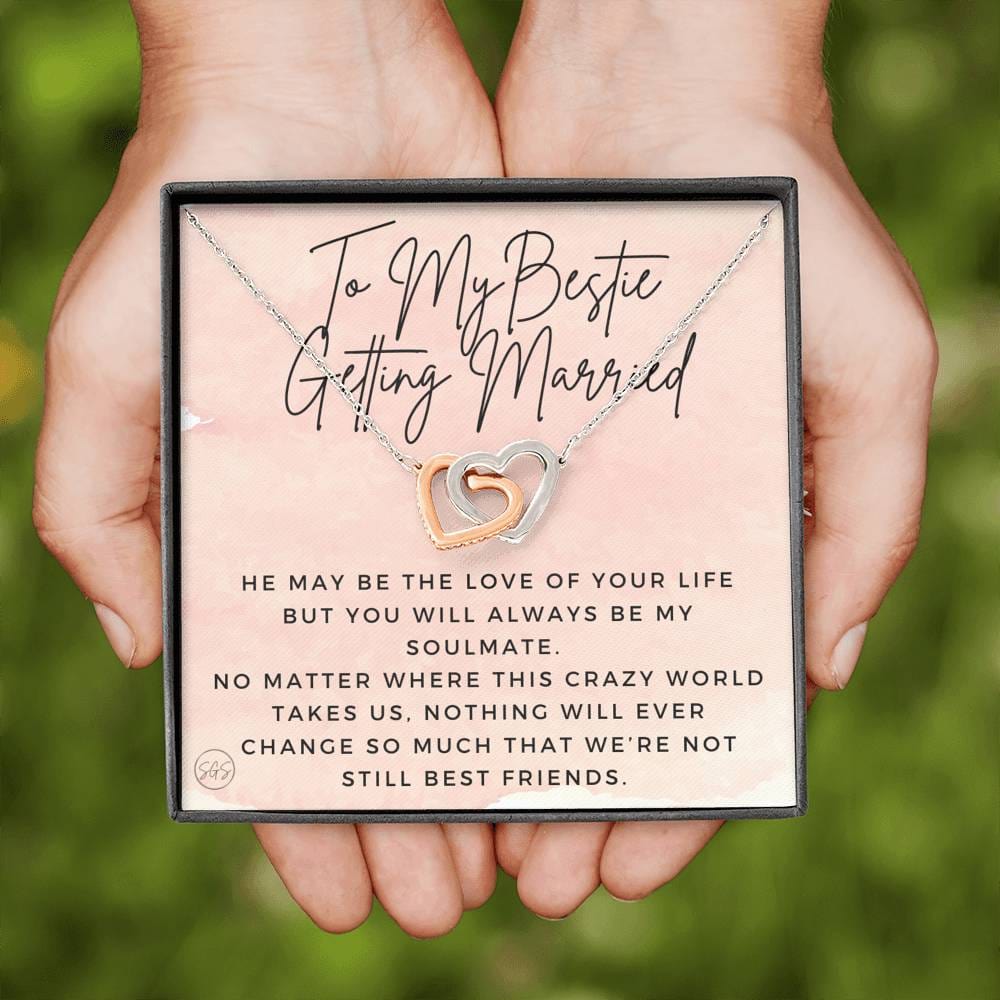 To My Bestie
Getting Married
HE MAY BE THE LOVE OF YOUR LIFE
BUT YOU WILL ALWAYS BE MY
SOULMATE.
NO MATTER WHERE THIS CRAZY WORLD
TAKES US, NOTHING WILL EVER
CHANGE SO MUCH THAT WE'RE NOT
STILL BEST FRIENDS.
SGS